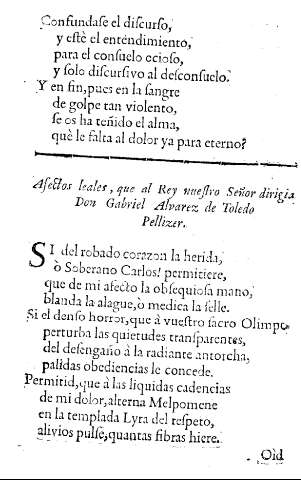 Confundase el discurso,
y estè el entendimiento,
para el consuelo ocioso,
y solo discursivo al desconsuelo.
Y en fin, pues en la sangre
de golpe tan violento,
se os ha teñido el alma,
què le falta al dolor ya para eterno?
Afectos leales, que al Rey nuestro Señor dirigia
Don Gabriel Alvarez de Toledo
Pellizer.
SI del robado corazon la herida,
ò Soberano Carlos! permitiere,
que de mi afecto la obsequiosa mano,
blanda la alague, ò medica la selle.
Si el denso horror, que à vuestro sacro Olimpo
perturba las quietudes transparentes,
del desengaño à la radiante antorcha,
palidas obediencias le concede.
Permitid, que à las liquidas cadencias
de mi dolor, alterna Melpomene
en la templada Lyra del respeto,
alivios pulse, quantas fibras hiere.
Oid